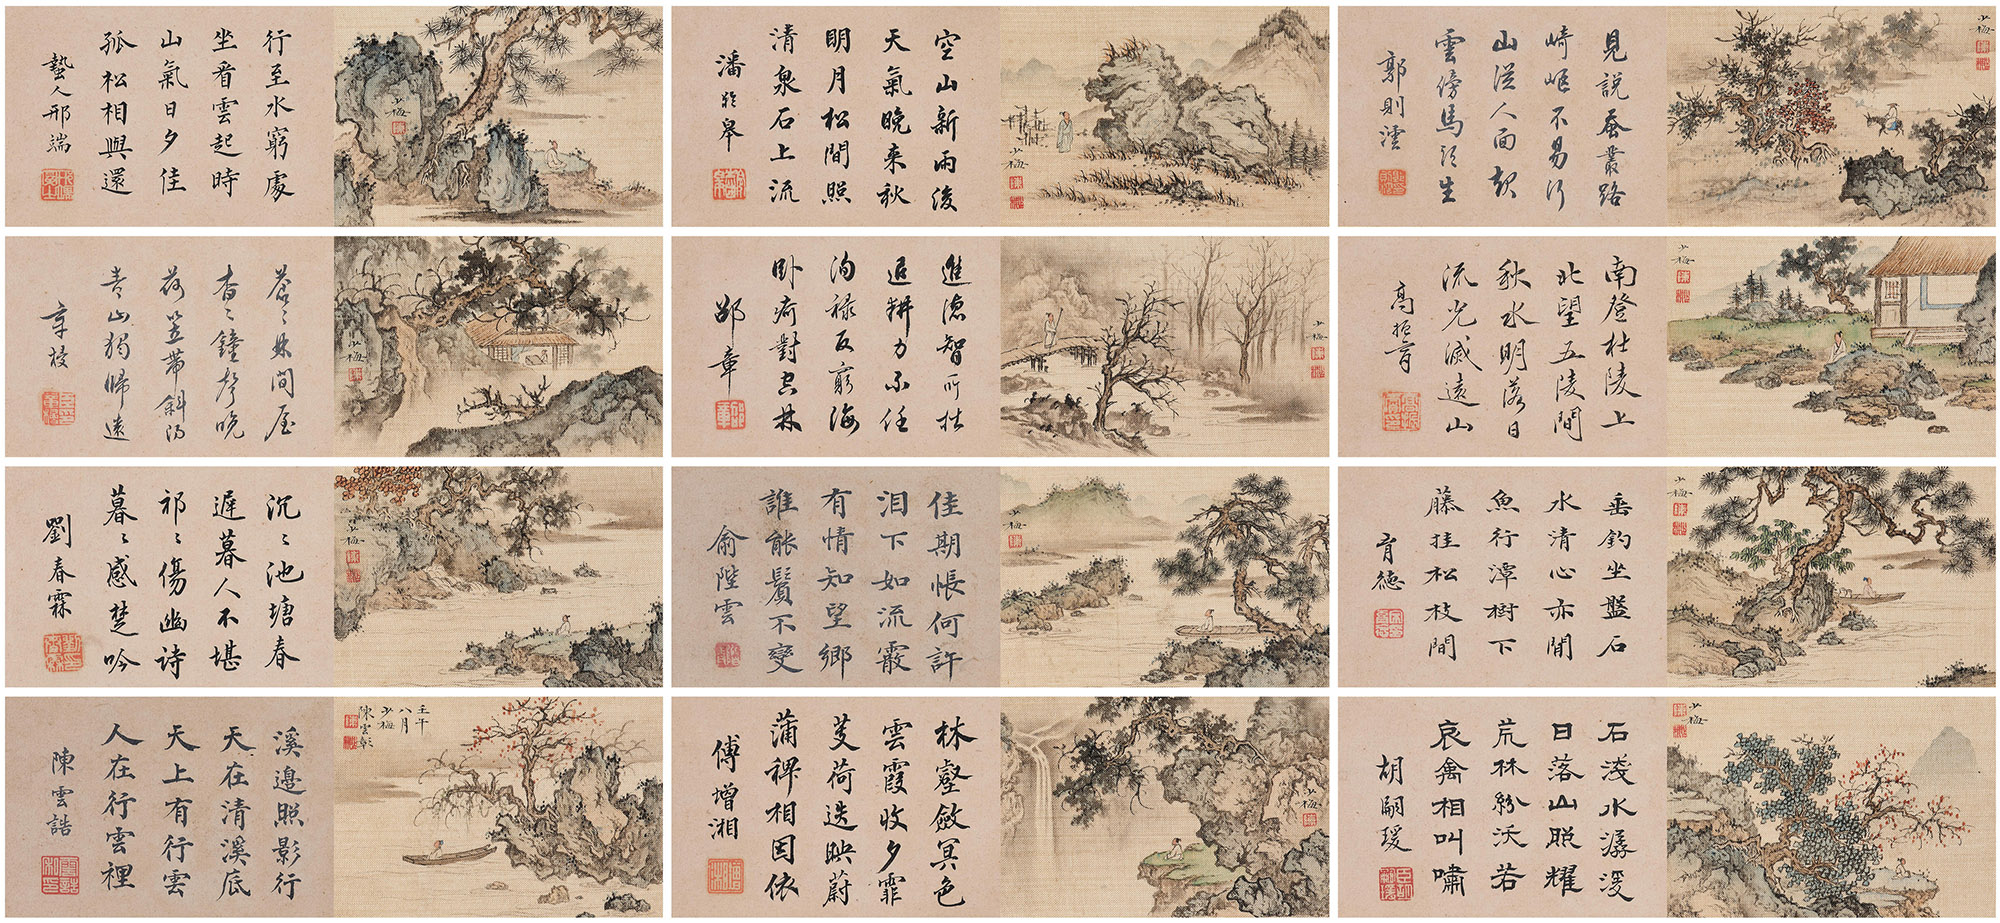 行至水窮處
坐看雲起時
山氣日夕佳
孤松相與還
蟄人邢端
少梅
空山新雨後
天氣晚来秋
明月松間照
清泉石上流
潘齡皋
少梅
見說蚕叢路
崎岖不易行
山從人面起
雲傍馬頭生
郭則澐
少梅
蒼〻林間屋
杳〻鐘聲晚
荷笠帶斜陽
青山獨歸遠
章梫
少梅
進德智所拙
退耕力不任
徇祿反窮海
卧痾對空林
邵章
少梅
南登杜陵上
北望五陵間
秋水明落日
流光滅遠山
高振霄
少梅
沉〻池塘春
遲暮人不堪
祁〻傷幽詩
暮〻感楚吟
劉春霖
少梅
佳期悵何許
泪下如流霰
有情知望鄉
誰能鬒不變
俞陛雲
少梅
垂釣坐盤石
水清心亦閒
魚行潭樹下
藤挂松枝間
育德
少梅
溪邉照影行
天在清溪底
天上有行雲
人在行雲裡
陳雲誥
壬午
八月
少梅
陳雲彰
林壑斂冥色
雲霞收夕霏
芰荷迭映蔚
蒲稗相因依
傅增湘
少梅
石淺水潺湲
日落山照耀
荒林紛沃若
哀禽相叫嘯
胡嗣瑗
少梅